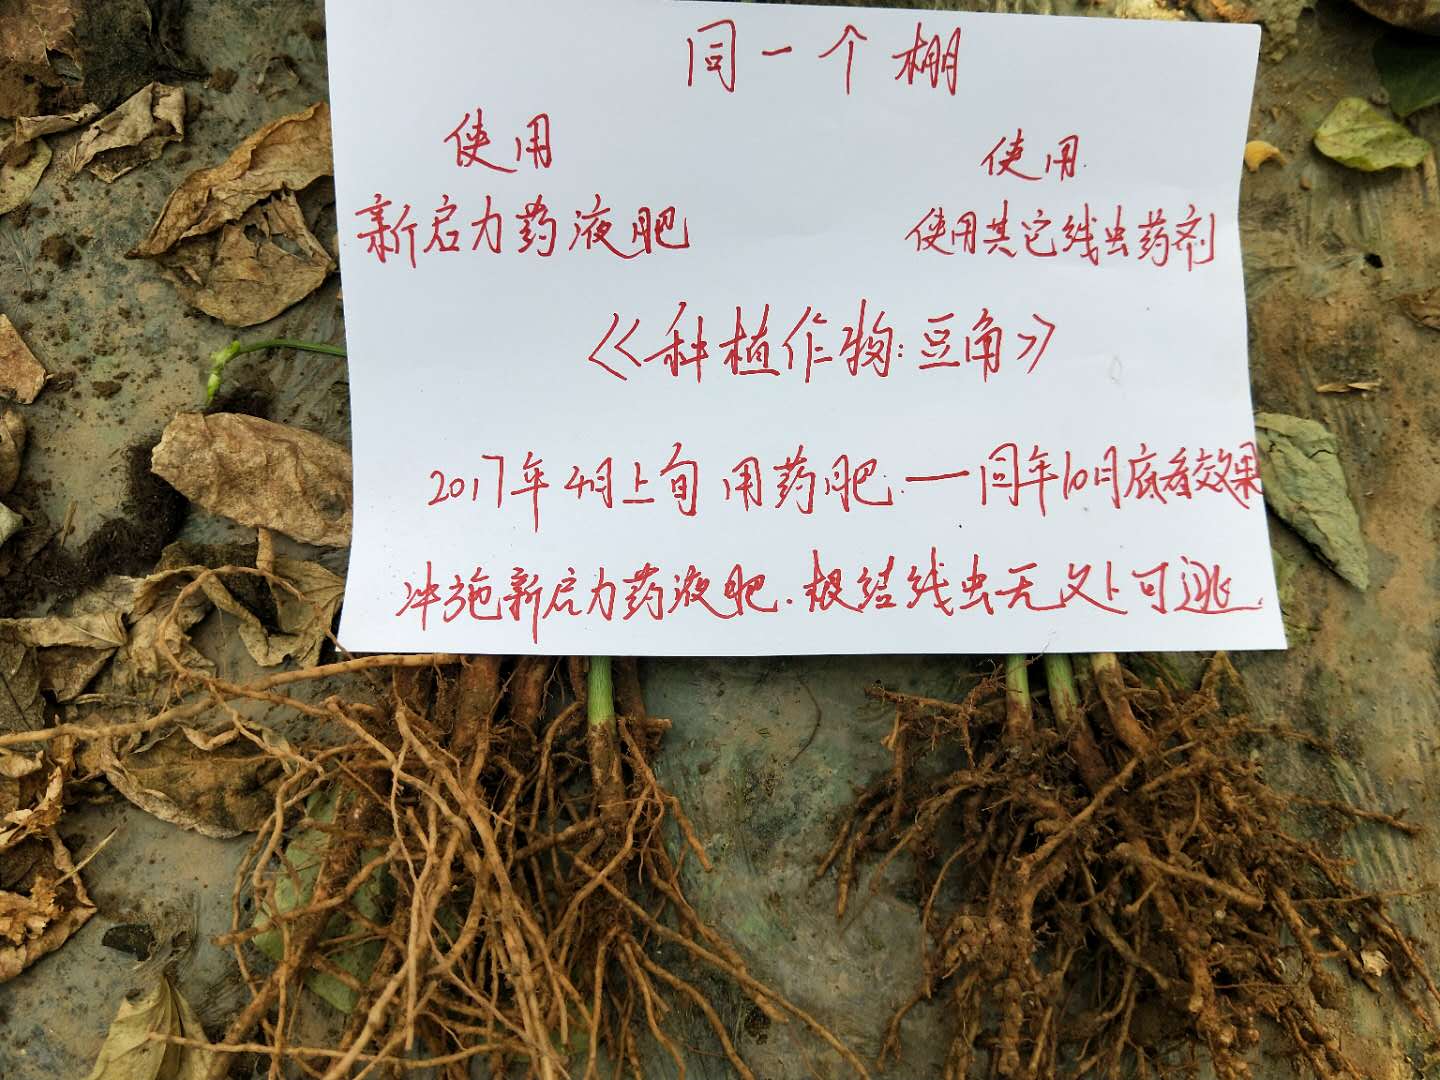 同一个棚
使用
新启力药液肥
使用
使用其它线虫药剂
《种植作物:豆角》
2017年4月上旬用药肥.一同年10月底看效果
冲施新启力药液肥.根结线虫无处可逃.